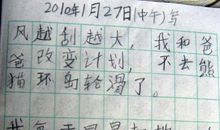 2010年1月27日(中午)写
风越刮越大，我和爸
爸改变计划，不去熊
猫环岛轮滑了。